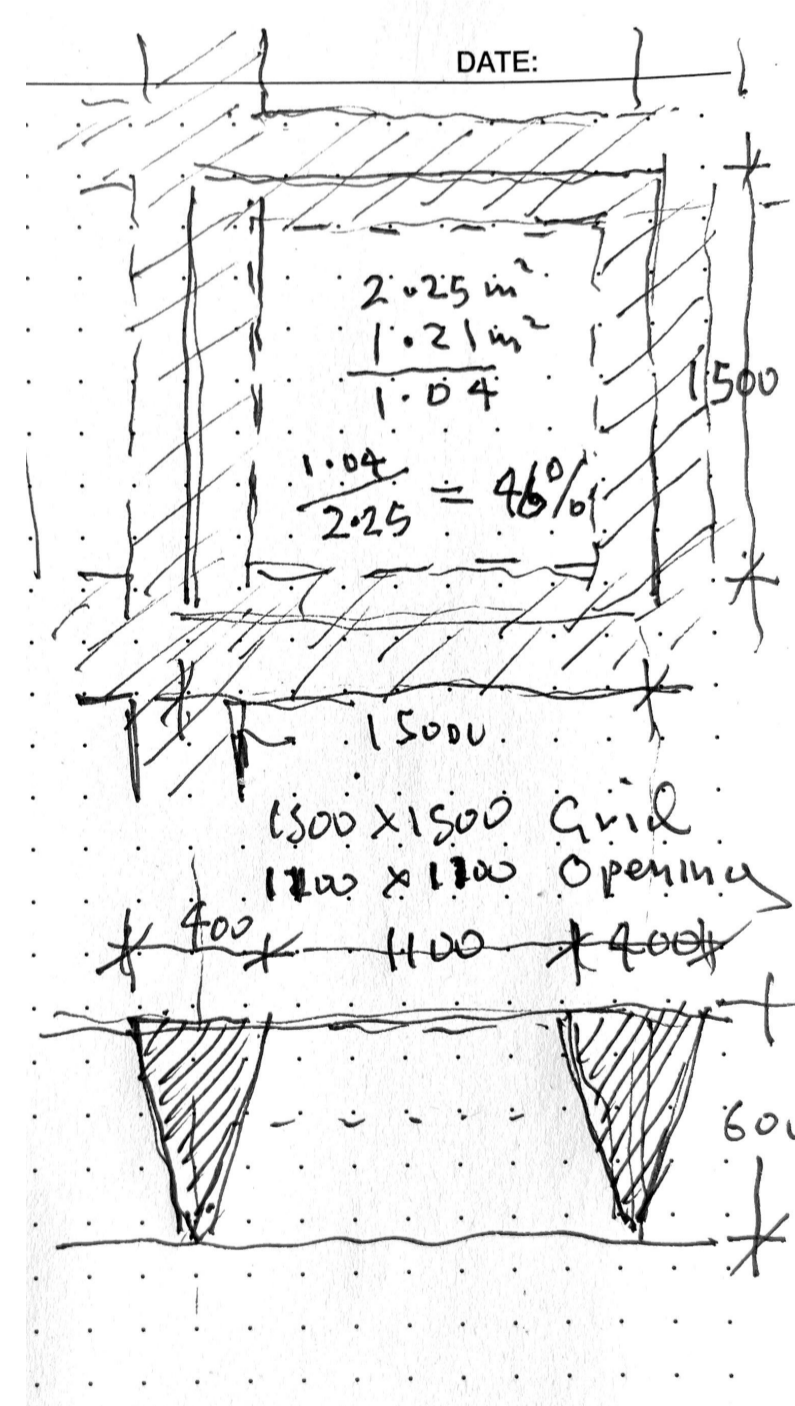 DATE:
2.25 m²
1.21 m²
1.04
1500
1.04
2.25 = 46%
1500
1500 X 1500 Grid
1100 X 1100 Opening
400 1100 400
600